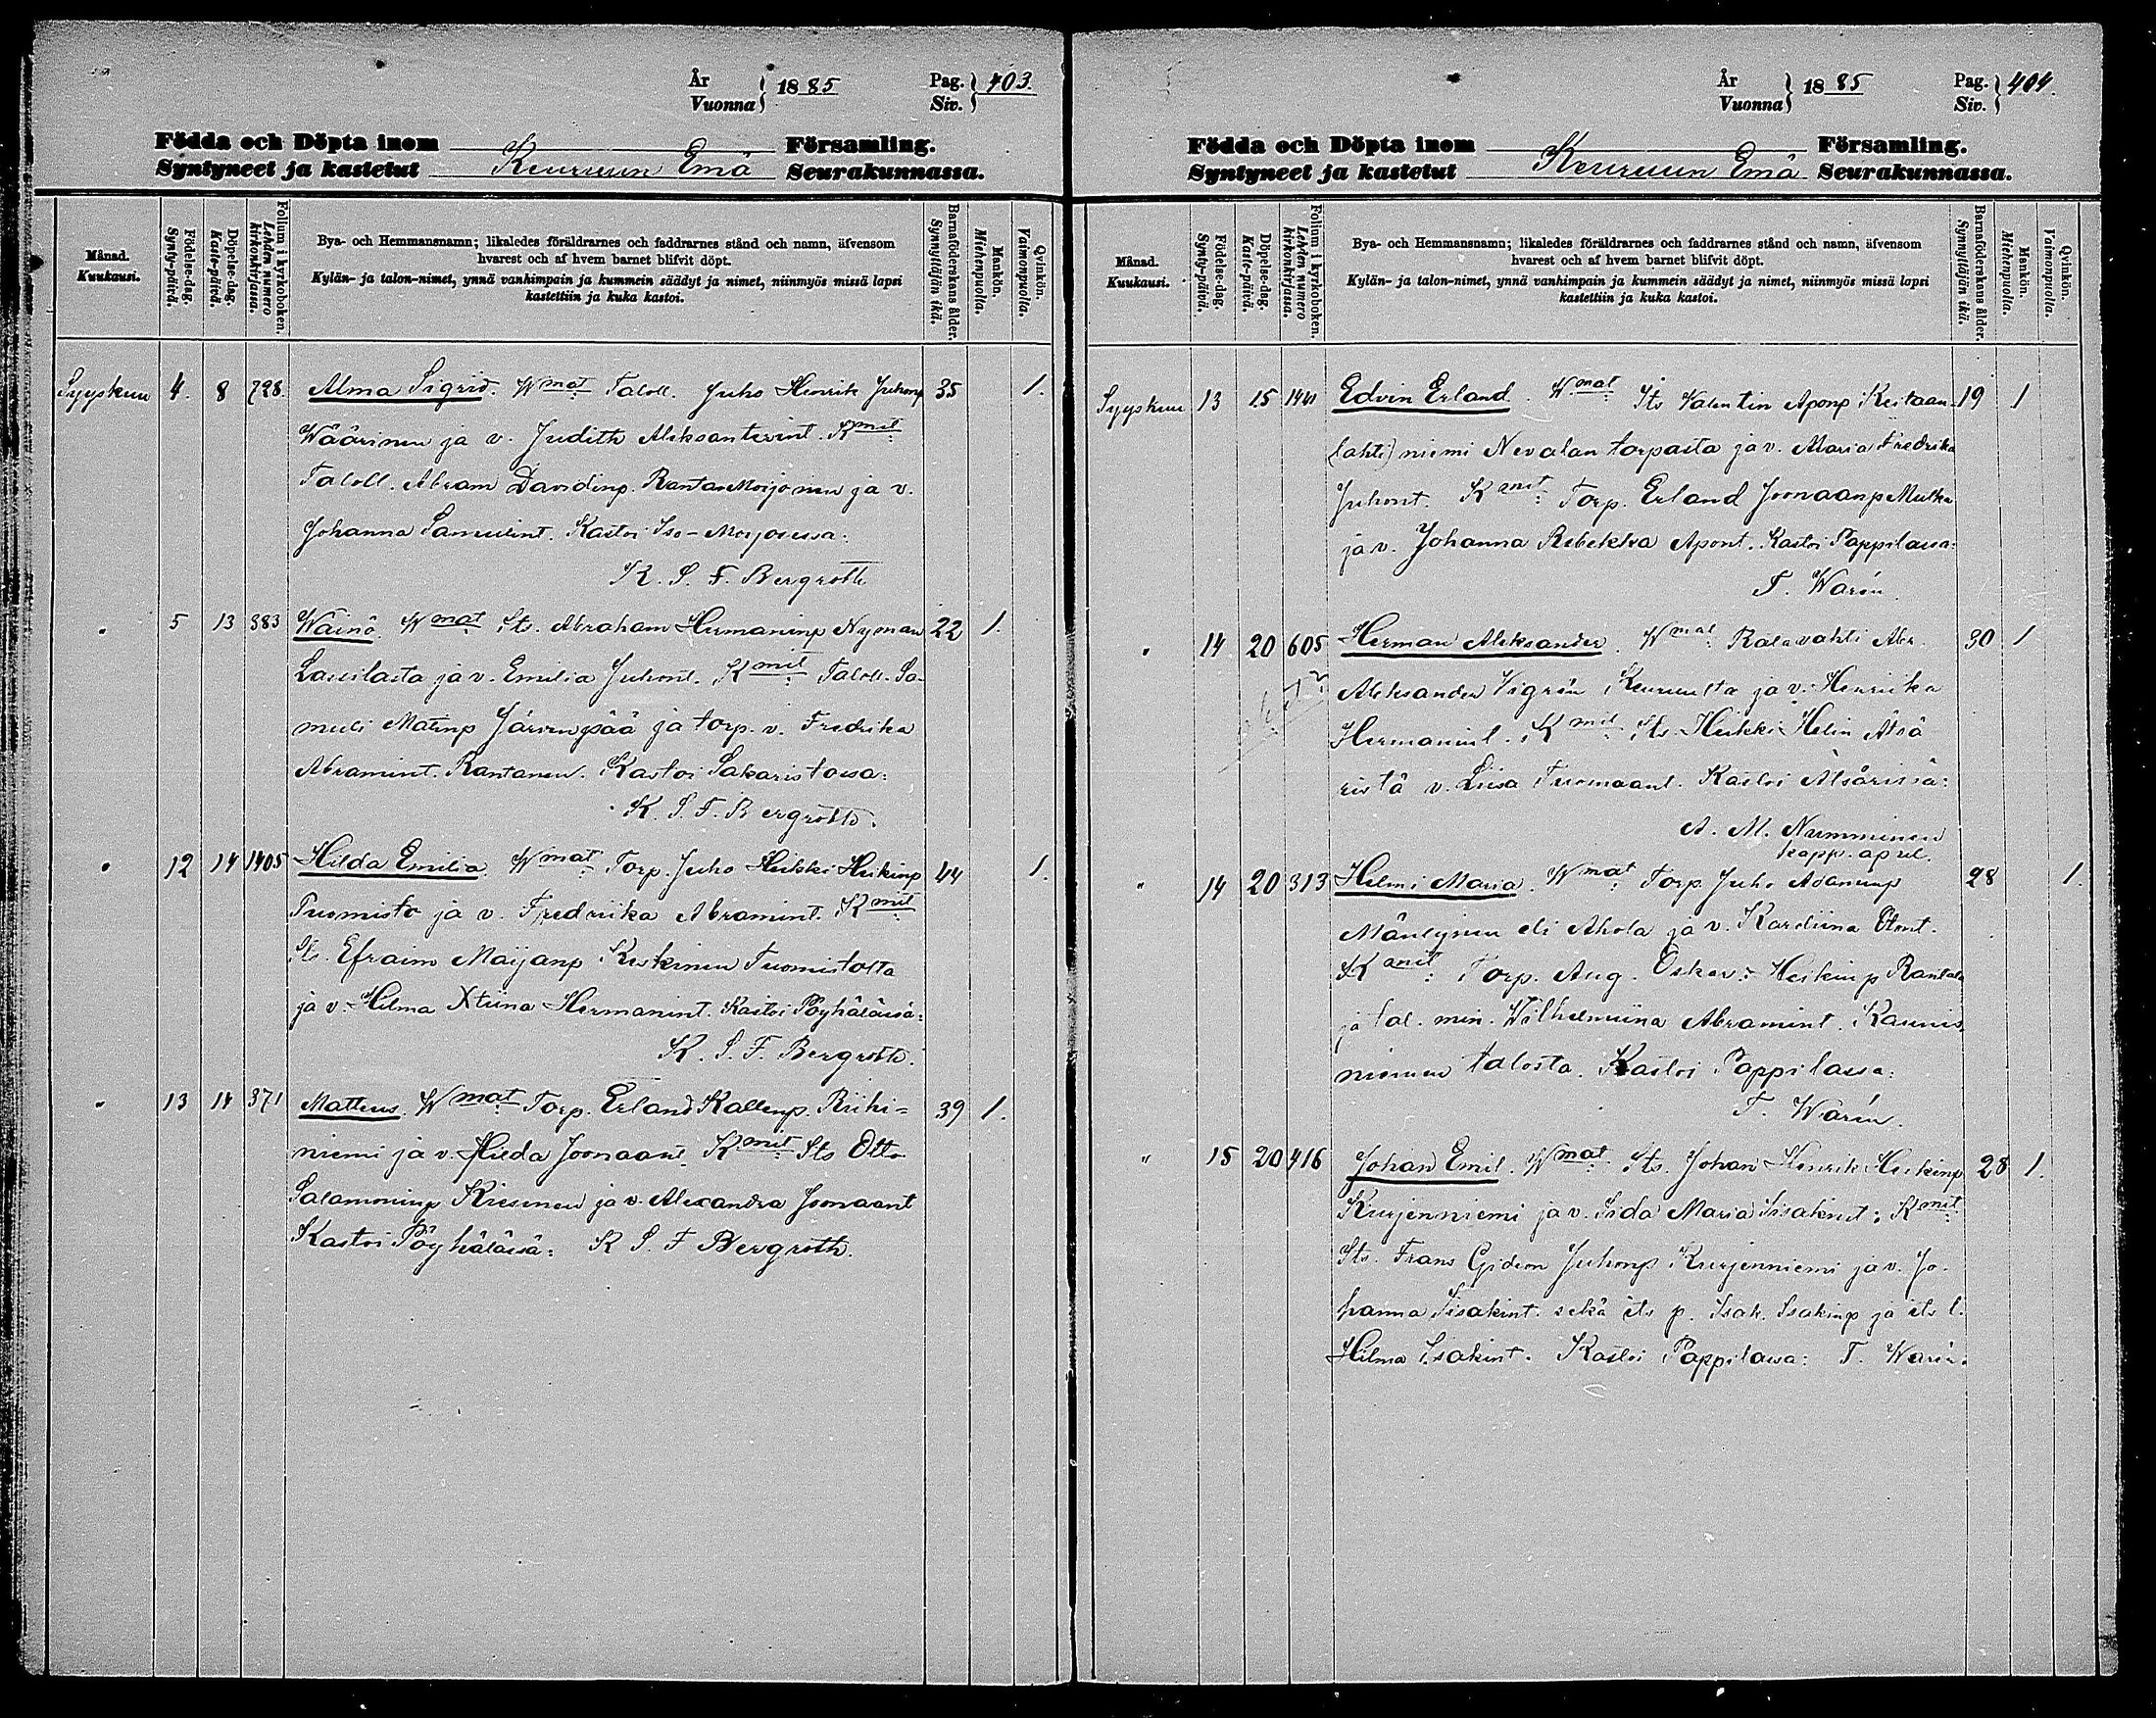 År
Vuonna } 1885 Pag.
Siv. } 403.
Födda och Döpta inom Församling.
Syntyneet ja kastetut Keuruun Emä Seurakunnassa.
Månad.
Kuukausi.
Födelse-dag.
Synty-päivä.
Döpelse-dag.
Kaste-päivä.
Folium i kyrkoboken.
Lehden numero
kirkonkirjassa.
Bya- och Hemmansnamn; likaledes föräldrarnes och faddrarnes stånd och namn, äfvensom
hvarest och af hvem barnet blifvit döpt.
Kylän- ja talon-nimet, ynnä vanhimpain ja kummein säädyt ja nimet, niinmyös missä lapsi
kastettiin ja kuka kastoi.
Barnaföderskans ålder.
Synnyttäjän ikä.
Mankön.
Miehenpuolia.
Qvinkön.
Vaimonpuolia.
Syyskuu 4. 8 728. Alma Sigrid. Wmat Taloll. Juho Henrik Juhonp 35 1.
Wäärinen ja v. Judith Aleksanterint. Kmit
Taloll. Abram Davidinp. Rantamoijonen ja v.
Johanna Samulint. Kastoi Iso-Moijosessa:
K. S. F. Bergroth
" 5 13 383 Wäinö. Wmat Its. Abraham Hermaninp Nyman 22 1.
Lassilasta ja v. Emilia Juhont. Kmit Taloll. Sa-
muli Matinp Järvenpää ja torp. v. Fredrika
Abramint. Rantanen. Kastoi Sakaristossa:
K. S. F. Bergroth.
" 12 14 1405 Hilda Emilia. Wmat Torp. Juho Heikki Heikinp 44 1.
Tuomisto ja v. Fredriika Abramint. Kmit
Its. Efraim Maijanp Keskinen Tuomistolta
ja v. Hilma Xtiina Hermanint. Kastoi Pöyhälässä:
K. S. F. Bergroth.
" 13 14 371 Matteus. Wmat Torp. Erland Kallenp. Riihi= 39 1.
niemi ja v. Hilda Joonaant. Kmit Its Otto
Salamoninp Kiesinen ja v. Alexandra Joonaant
Kastoi Pöyhälässä: K S. F Bergroth.
År
Vuonna } 1885 Pag.
Siv. } 404.
Födda och Döpta inom Församling.
Syntyneet ja kastetut Keuruun Emä Seurakunnassa.
Månad.
Kuukausi.
Födelse-dag.
Synty-päivä.
Döpelse-dag.
Kaste-päivä.
Folium i kyrkoboken.
Lehden numero
kirkonkirjassa.
Bya- och Hemmansnamn; likaledes föräldrarnes och faddrarnes stånd och namn, äfvensom
hvarest och af hvem barnet blifvit döpt.
Kylän- ja talon-nimet, ynnä vanhimpain ja kummein säädyt ja nimet, niinmyös missä lapsi
kastettiin ja kuka kastoi.
Barnaföderskans ålder.
Synnyttäjän ikä.
Mankön.
Miehenpuolia.
Qvinkön.
Vaimonpuolia.
Syyskuu 13 15 Edvin Erland. Wmat: Its Valentin Aponp Keitaan- 19 1
(lahti) niemi Nevalan torpasta ja v. Maria Fredrika
Juhont. Kmit: Torp. Erland Joonaanp Multia
ja v. Johanna Rebekka Apont. Kastoi Pappilassa:
T. Warén.
" 14 20 605 Herman Aleksander. Wmat: Ralavahti Alex. 30 1
Aleksander Vigrén Keuruulta ja v. Henriika
Hermanint. Kmit Its. Heikki Helin Ätsä
ristä v. Liisa Tuomaant. Kastoi Ätsärissä:
A. M. Numminen
kapp. apul.
" 14 20 313 Helmi Maria. Wmat: Torp. Juho Adaminp 28 1.
Mänlynen eli Ahola ja v. Karoliina Otont.
Kmit: Torp. Aug. Oskar Heikinp Rantala
ja tal. min. Wilhelmiina Abramint. Kaunis
niemen talosta. Kastoi Pappilassa:
T. Warén.
" 15 20 416 Johan Emil. Wmat: Its. Johan Henrik Heikinp 28 1.
Kurjenniemi ja v. Iida Maria Iisakint: Kmit
Its. Frans Gideon Juhonp Kurjenniemi ja v. Jo-
hanna Iisakint. sekä its p. Isak. Isakinp ja its t.
Hilma Isakint. Kastoi Pappilassa: T. Warén.